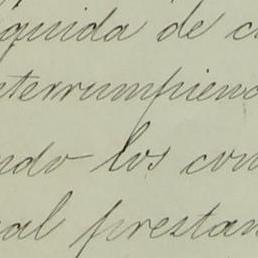 quida de c
terrumpiend
ndo los con
al prestan